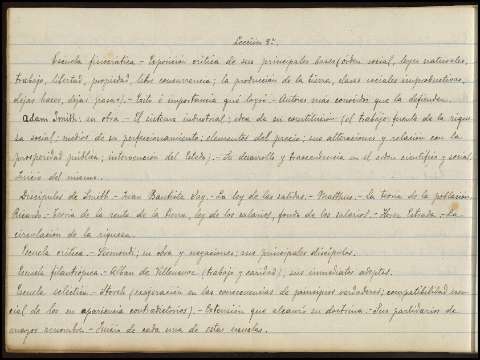 Lección 8ª.
Escuela fisiocrática.- Exposición crítica de sus principales bases (orden social, leyes naturales,
trabajo, libertad, propiedad, libre concurrencia; la producción de la tierra, clases sociales improductivas,
dejas hacer, dejas pasar).- Éxito é importancia que logró.- Autores más conocidos que la defienden.
Adam Smith; su obra.- El sistema industrial; idea de su constitución (el trabajo fuente de la rique-
sa social; medios de su perfeccionamiento; elementos del precio; sus alteraciones y relación con la
prosperidad pública; intervención del Estado).- Su desarrollo y trascendencia en el orden científico y social.
Juicio del mismo.
Discípulos de Smith.- Juan Bautista Say.- La ley de las salidas.- Malthus.- La teoría de la población.
Ricardo.- Teoría de la renta de la tierra, ley de los salarios, fondo de los salarios.- Flórez Estrada.- La
circulación de la riqueza.
Escuela crítica.- Sismondi; su obra y negaciones; sus principales discípulos.
Escuela filantrópica.- Alban de Villeneuve (trabajo y caridad), sus inmediatos adeptos.
Escuela selectiva.- Storch (exageración en las consecuencias de principios verdaderos; compatibilidad esen-
cial de los en apariencia contradictorios).- Extensión que alcanzó su doctrina.- Sus partidarios de
mayor renombre.- Juicio de cada una de estas escuelas.